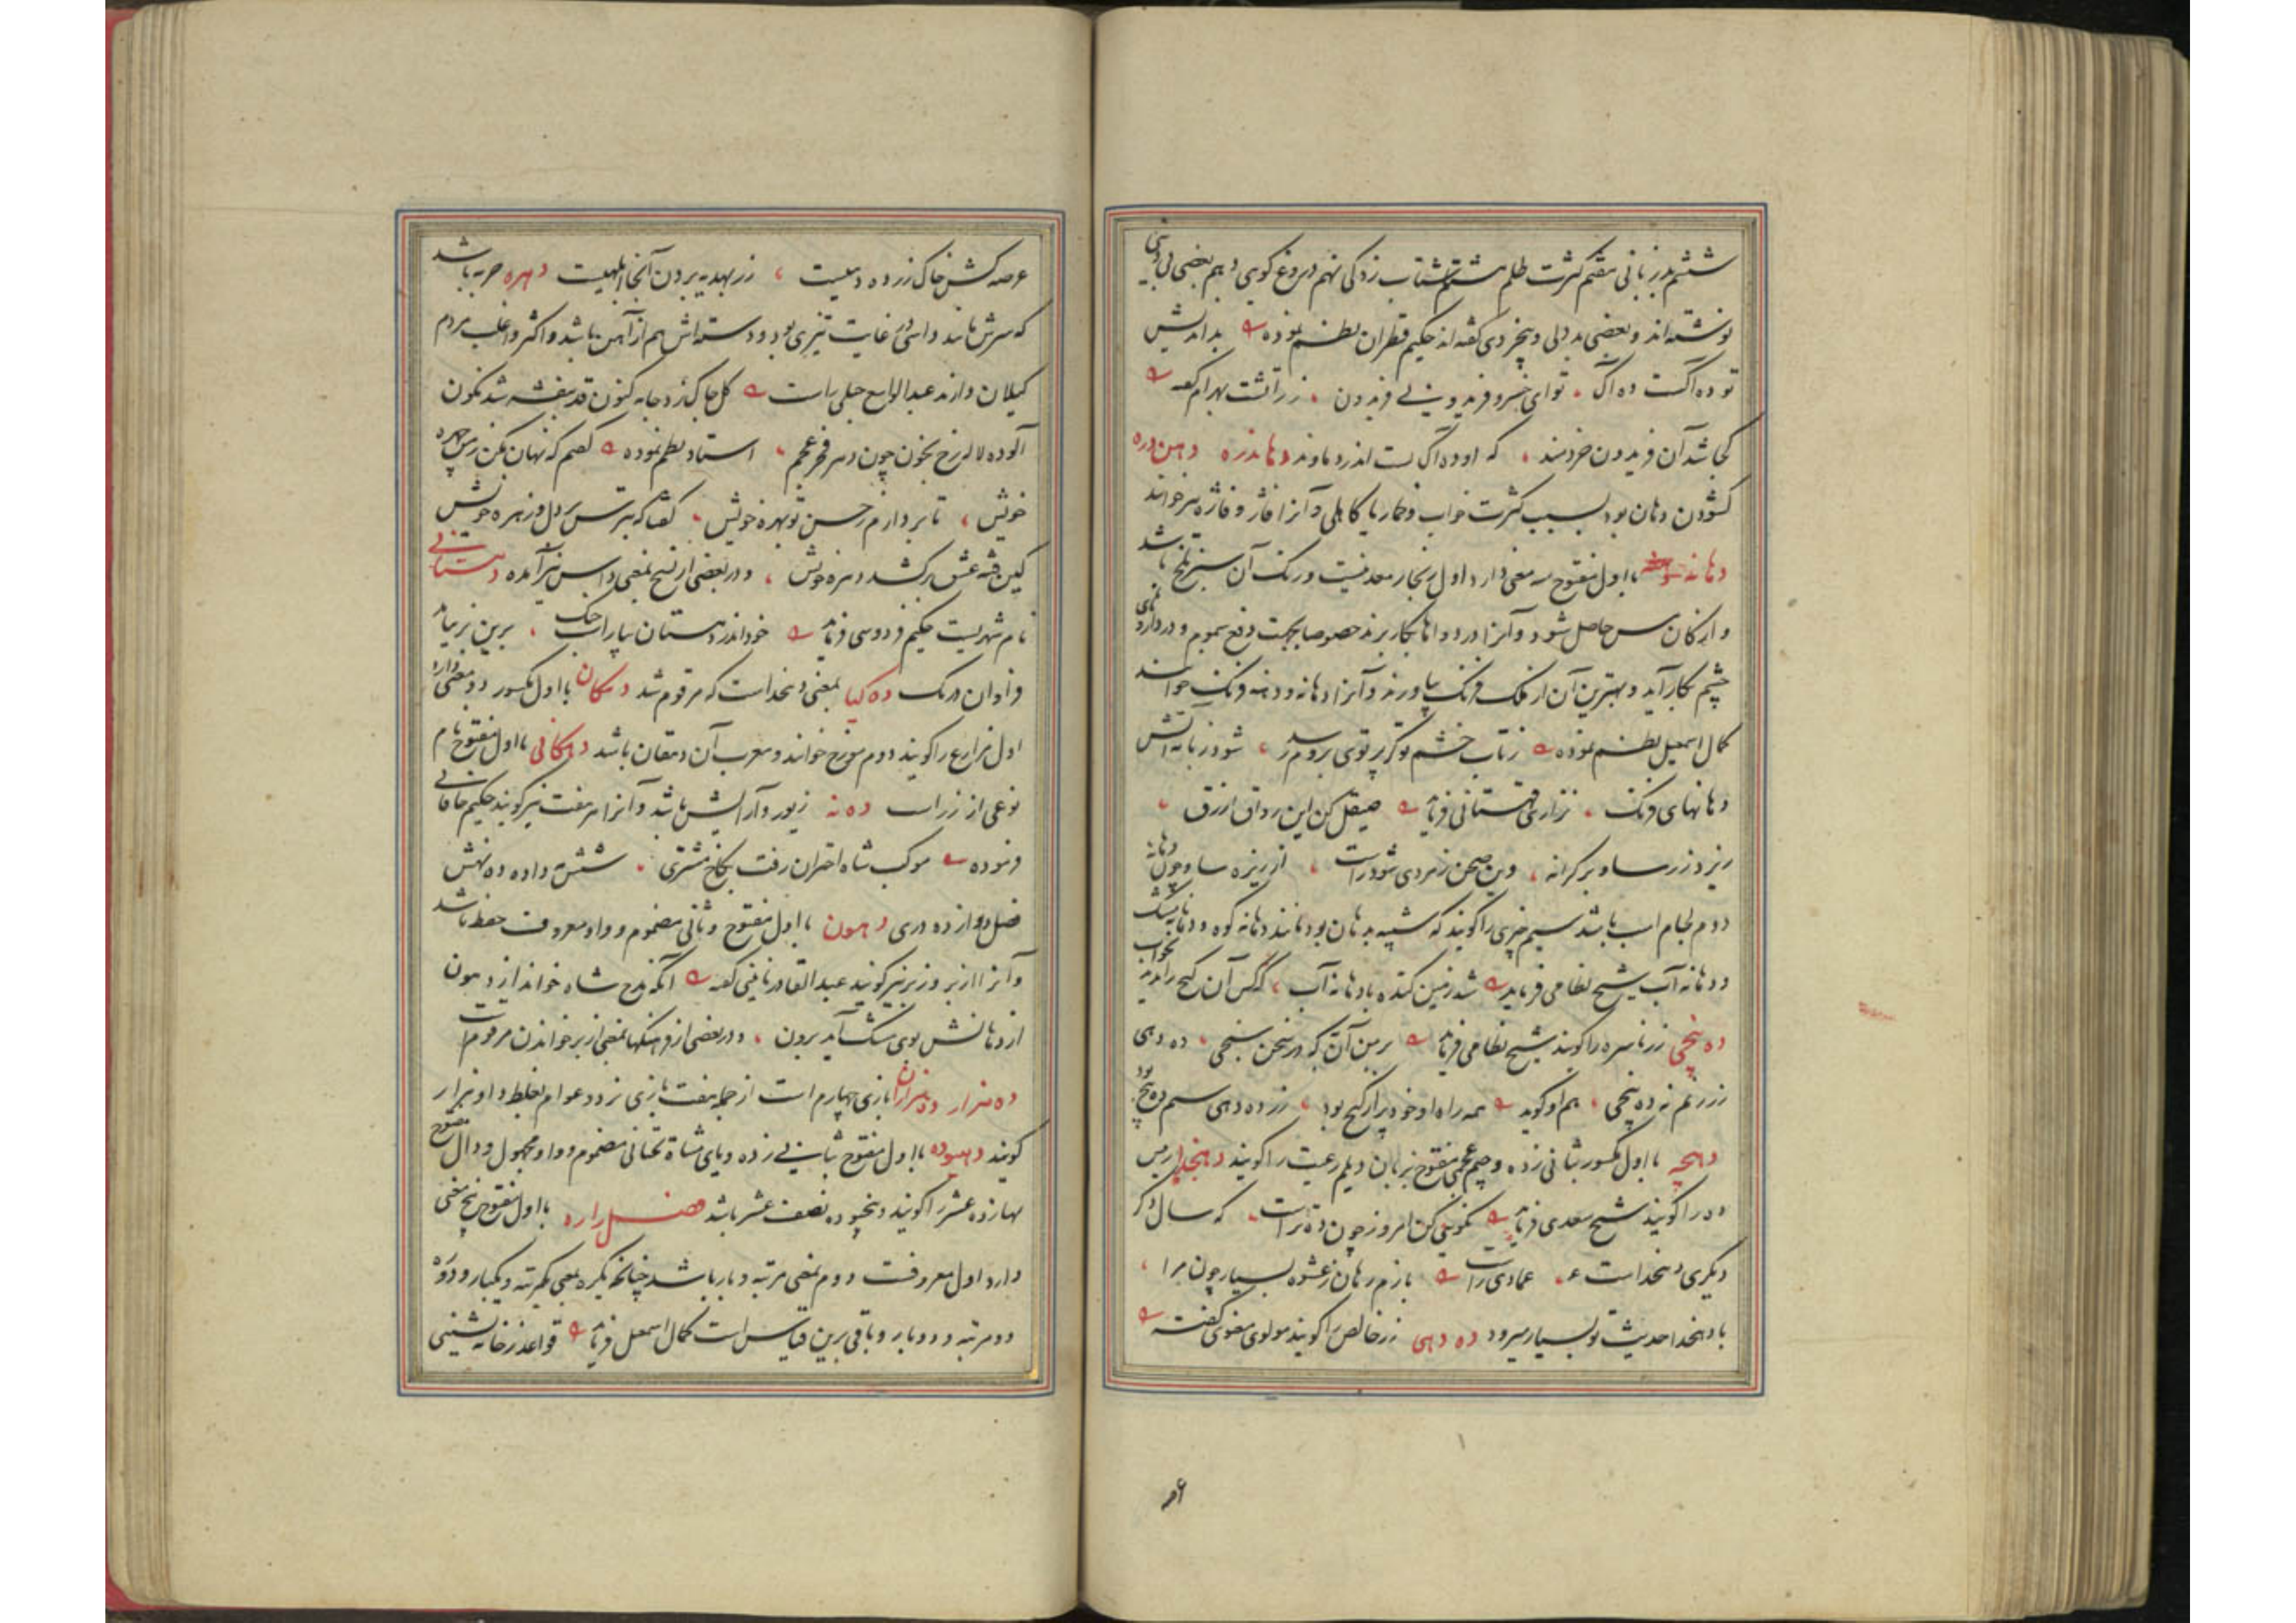 ششم بدزبانی هفتم کثرت ظلم هشتم شتاب زدگی نهم دروغ گویی دهم بعضی بی دینی
نوشته‌اند و بعضی بددلی و بیخردی گفته‌اند حکیم قطران نظم نموده بداندیش
تو ده اکست ده اک تو ای خسرو فریدونی فریدون زراتشت بهرام گفته
کجا شد آن فریدون خردمند که او ده اک بست اندر دماوند دهاندره دهن دره
کشودن دهان بود بسبب کثرت خواب و خمار یا کاهلی و آنرا فاژ و فاژه نیز خوانند
دهانه با اول مفتوح سه معنی دارد اول زنگار معدنیست و رنگ آن سبز تلخ باشد
و از کان مس حاصل شود و آنرا در دواها بکار برند خصوصا بجهت دفع سموم و در داروهای
چشم بکار آید و بهترین آن از ملک فرنک بیاورند و آنرا دهانه و دهنه فرنک خوانند
کمال اسمعیل نظم نموده زتاب خشم تو گر پرتوی بروم رسد شود زبانه آتش
دهانهای فرنک نزاری قهستانی فرماید صیقل کن این رواق ازرق
ریزد زر ساو بر کرانه وین صحن زمردی شود راست از ریزه ساو چون دهانه
دوم لجام اسب باشد سیم چیزی را گویند که شبیه بدهان بود مانند دهانه کوه و دهانه مشک
و دهانه آب شیخ نظامی فرماید شد زمین کنده با دهانه آب کس آن گنج را ندید بخواب
ده پنجی زر ناسره را گویند شیخ نظامی فرماید بر من آن به که در سخن سنجی ده دهی
زر زنم نه ده پنجی هم او گوید همه راه او خود پر از گنج بود زر ده دهی سیم ده پنج بود
دهچه با اول مکسور بثانی زده و جیم عجمی مفتوح بزبان دیلم رعیت را گویند دهخدا رئیس
ده را گویند شیخ سعدی فرماید نکوئی کن امروز چون ده تراست که سال دگر
دیگری دهخداست عمادی راست بازم رهان ز عشوه بسیار چون مرا
با دهخدا حدیث تو بسیار میرود ده دهی زر خالص را گویند مولوی معنوی گفته
عرصه کش خاک زر ده دهیست زر بهدیه بردن آنجا ابلهیست دهره حربه باشد
که سرش مانند داس در غایت تیزی بود و دسته‌اش هم از آهن باشد و اکثر و اغلب مردم
گیلان دارند عبدالواسع جبلی راست گل چاک زد جامه کنون قد بنفشه شد نگون
آلوده لاله رخ بخون چون دهره فخر عجم استاد نظم نموده گفتم که نهان مکن ز من چهره
خویش تا بردارم ز حسن تو بهره خویش گفتا که بترس بر دل و زهره خویش
کین فتنه عشق برکشد دهره خویش و در بعضی از نسخ بمعنی داس نیز آمده دهستانی
نام شهریست حکیم فردوسی فرماید خود اندر دهستان بیاراست جنگ برین بر نیامد
فراوان درنک ده کیا بمعنی دهخداست که مرقوم شد دهکان با اول مکسور دو معنی دارد
اول مزارع را گویند دوم مورخ خوانند و معرب آن دهقان باشد دهکانی با اول مفتوح نام
نوعی از زر است ده نه زیور و آرایش باشد و آنرا هر هفت نیز گویند حکیم خاقانی
فرموده موکب شاه اختران رفت بکاخ مشتری شش مه داده ده نهش
فضل دوازده دری دهون با اول مفتوح و ثانی مضموم و واو معروف حفظ باشد
و آنرا از بر و زبر نیز گویند عبدالقادر نایینی گفته آنکه مدح شاه خواند از دهون
از دهانش بوی مشک آید برون و در بعضی از فرهنگها بمعنی از بر خواندن مرقوم است
ده هزار ده هزاران بازی چهارم است از جمله هفت بازی نرد و عوام بغلط داو هزار
گویند دهیوده با اول مفتوح بثانی زده و یای مثناة تحتانی مضموم و واو مجهول و دال مفتوح
بهازده عشر را گویند و پنجیوده نصف عشر باشد فصل را ره با اول مفتوح پنج معنی
دارد اول معروفست دوم بمعنی مرتبه و بار باشد چنانکه یکره بمعنی یکمرتبه و یکبار و دو ره
دو مرتبه و دو بار و باقی برین قیاس است کمال اسمعیل فرماید قواعد ز خانه نشینی
۵۶